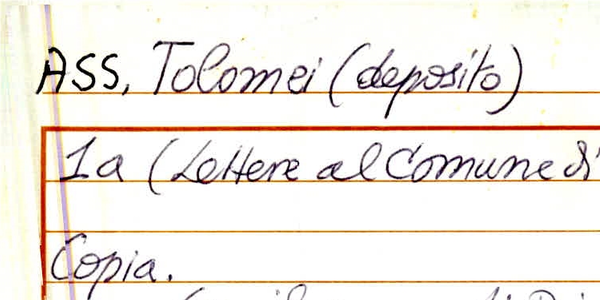 ASS, Tolomei (deposito)
1a (Lettere al Comune di
Copia.